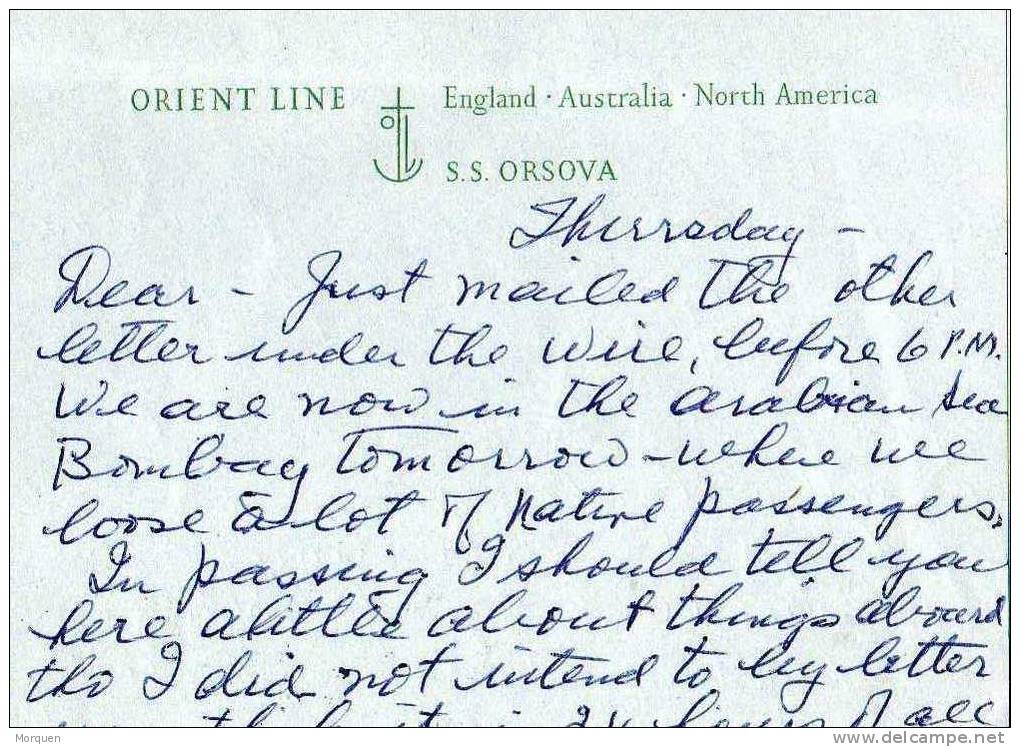 ORIENT LINE England · Australia · North America
S.S. ORSOVA
Thursday -
Dear - Just mailed the other
letter under the wire, before 6 P.M.
We are now in the arabian sea
Bombay tomorrow - where we
loose a lot of native passengers.
In passing I should tell you
here a little about things aboard
tho I did not intend to by letter
it is 24 hours of all
Morquen
delcampe.net